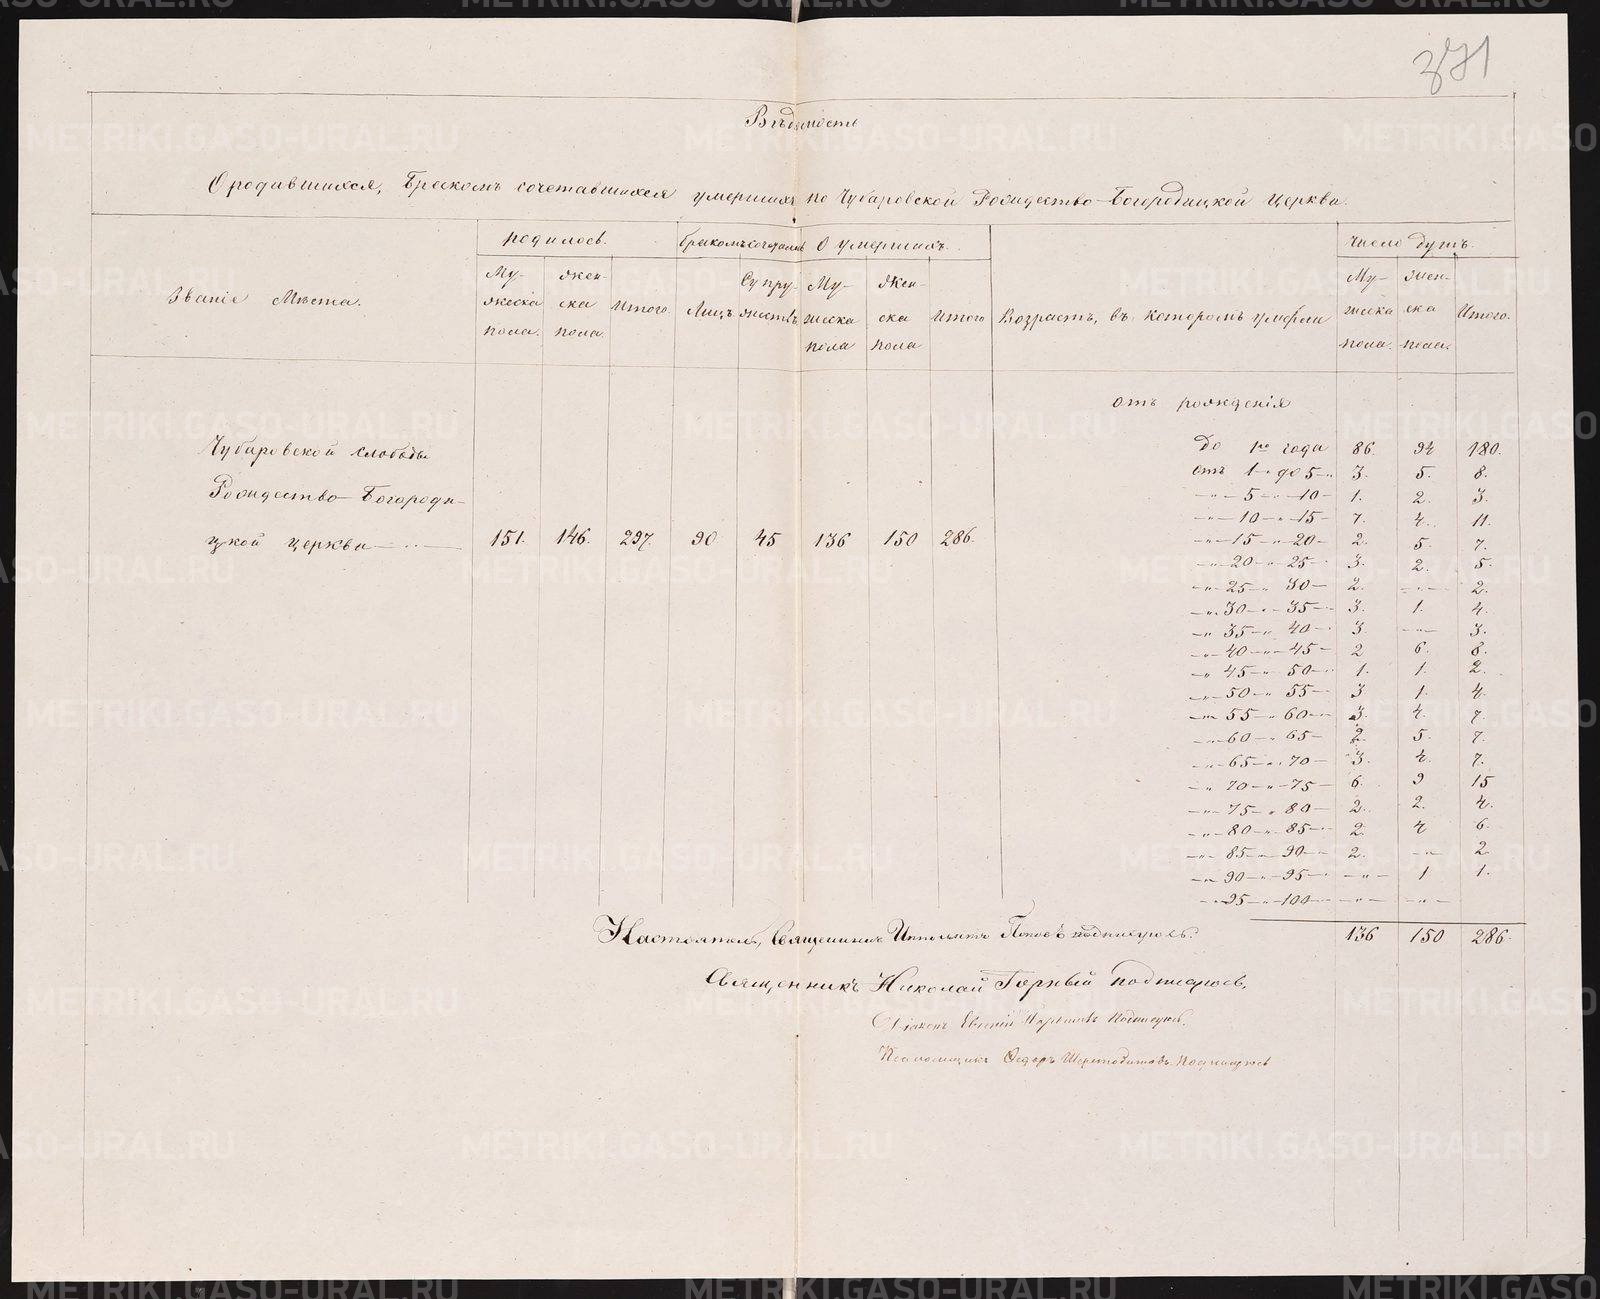 371
Вѣдомость
О родившихся, бракомъ сочетавшихся умершихъ по Чубаровской Рождество-Богородицкой церкви.
Званіе Мѣста.
родилось.
бракомъ сочетались
О умершихъ.
Число душъ.
Му-
жеска
пола.
жен-
ска
пола.
Итого.
Лицъ
Супру-
жествъ
Му-
жеска
пола
Жен-
ска
пола
Итого
Возрастъ, въ которомъ умерли
Му-
жеска
пола.
жен-
ска
пола.
Итого.
отъ рожденія
Чубаровской слободы
Рождество-Богороди-
цкой церкви
151. 146. 297. 90 45 136 150 286.
до 1го года 86. 94 180.
отъ 1 до 5 3. 5. 8.
-"- 5 -"- 10 - 1. 2. 3.
-"- 10 -"- 15 - 7. 4. 11.
-"- 15 -"- 20 - 2. 5. 7.
-"- 20 -"- 25 - 3. 2. 5.
-"- 25 -"- 30 - 2. -"- 2.
-"- 30 -"- 35 - 3. 1. 4.
-"- 35 -"- 40 - 3. -"- 3.
-"- 40 -"- 45 - 2 6. 8.
-"- 45 -"- 50 - 1. 1. 2.
-"- 50 -"- 55 - 3 1. 4.
-"- 55 -"- 60 - 3. 4. 7.
-"- 60 -"- 65 - 2. 5. 7.
-"- 65 -"- 70 - 3. 4. 7.
-"- 70 -"- 75 - 6. 9 15
-"- 75 -"- 80 - 2. 2. 4.
-"- 80 -"- 85 - 2. 4 6.
-"- 85 -"- 90 - 2. -"- 2
-"- 90 -"- 95 - -"- 1 1.
-"- 95 -"- 100 - -"- -"-
136 150 286.
Настоятель, Священникъ Ипполитъ Поповъ подписуюсь.
Священникъ Николай Горный подписуюсь,
Діаконъ Евгеній подписуюсь.
Псаломщикъ Ѳедоръ подписуюсь
METRIKI.GASO-URAL.RU